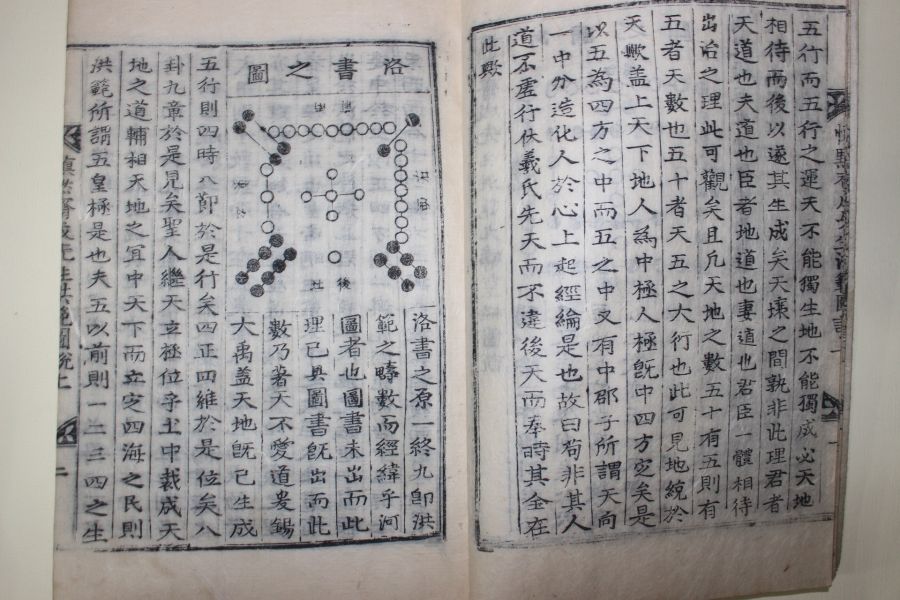 五行而五行之運天不能獨生地不能獨成必天地
相待而後以遂其生成矣天壤之間孰非此理君者
天道也夫道也臣者地道也妻道也君臣一體相待
出治之理此可觀矣且凡天地之數五十有五則有
五者天數也五十者天五之大衍也此可見地統於
天歟盖上天下地人為中極人極旣中四方定矣是
以五為四方之中而五之中又有中邵子所謂天向
一中分造化人於心上起經綸是也故曰苟非其人
道不虛行伏羲氏先天而不違後天而奉時其全在
此歟
洛書之圖
洛書之原一終九卽洪
範之疇數而經緯乎河
圖者也圖書未出而此
理已具圖書旣出而此
數乃著天不愛道爰錫
大禹盖天地旣已生成
五行則四時八節於是行矣四正四維於是位矣八
卦九章於是見矣聖人繼天立極位乎土中裁成天
地之道輔相天地之宜中天下而立定四海之民則
洪範所謂五皇極是也夫五以前則一二三四之生